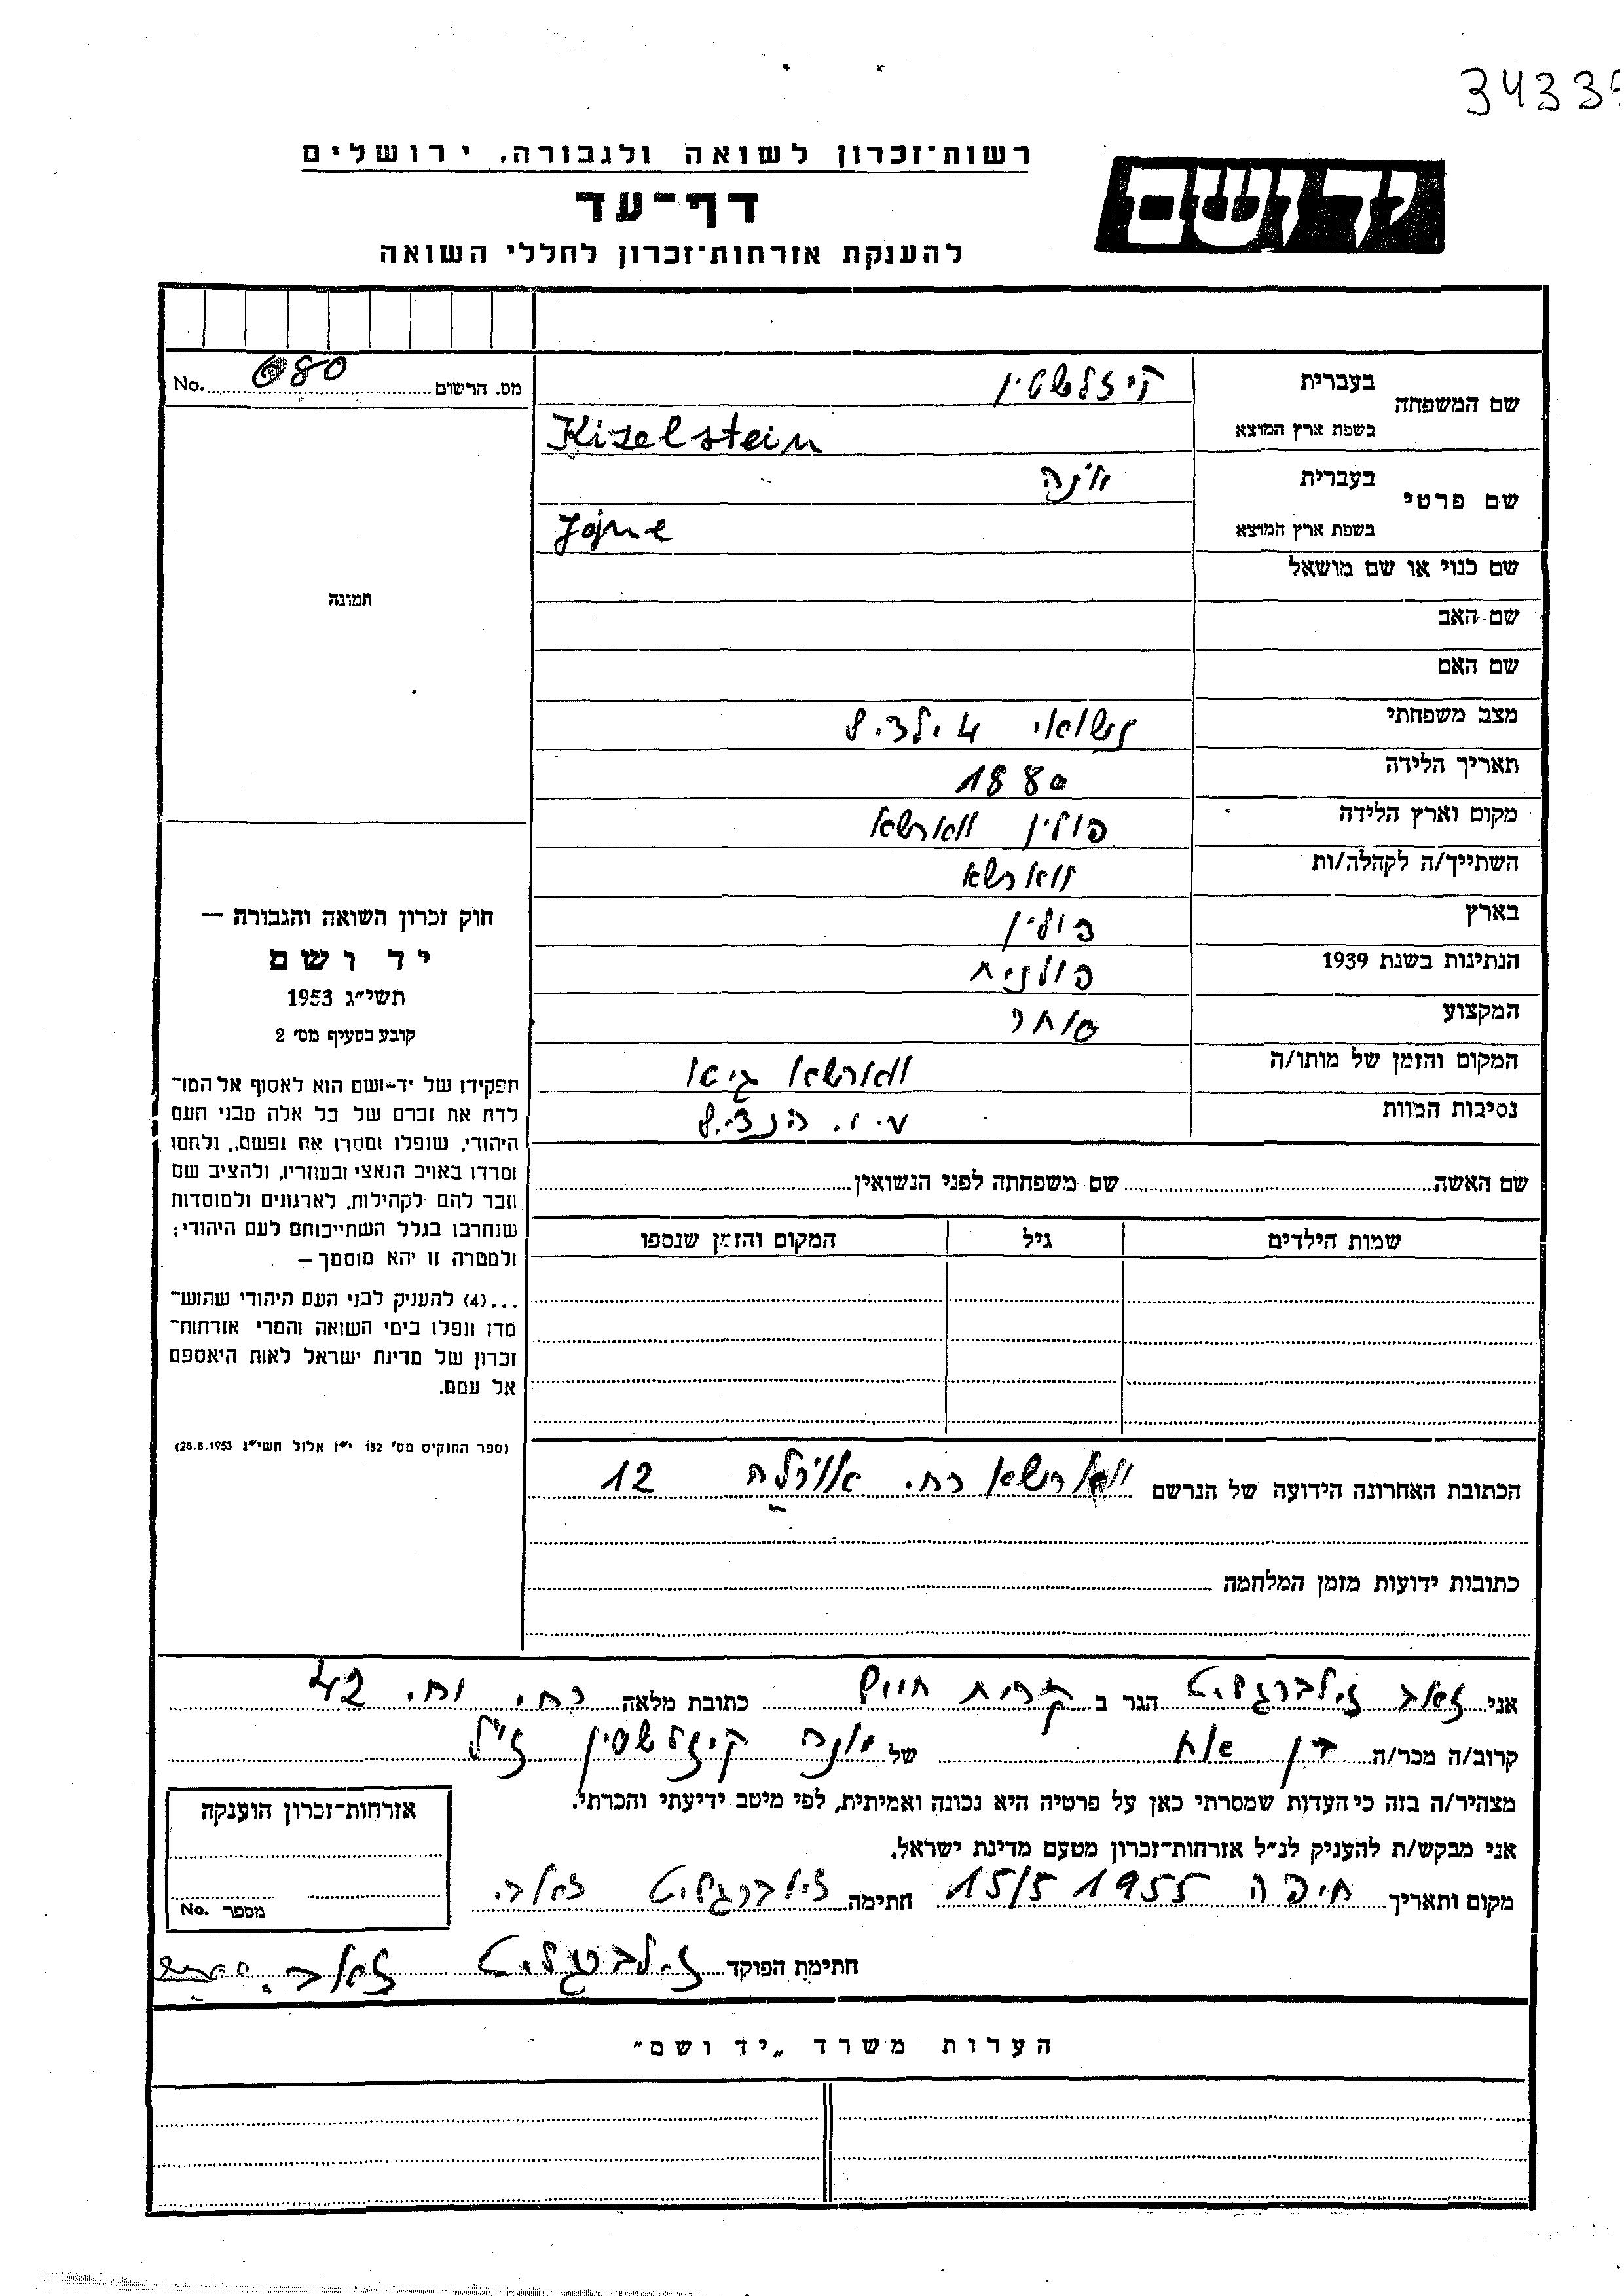 3433
רשות־זכרון לשואה ולגבורה, ירושלים
יד ושם
דף־עד
להענקת אזרחות־זכרון לחללי השואה
מס. הרשום 080 No.
שם המשפחה
בעברית קיזלשטין
בשפת ארץ המוצא Kizelstein
שם פרטי
בעברית יונה
בשפת ארץ המוצא Jojne
שם כנוי או שם מושאל
שם האב
שם האם
מצב משפחתי נשואי 4 ילדים
תאריך הלידה 1880
מקום וארץ הלידה פולין ווארשא
השתייך/ה לקהלה/ות ווארשא
בארץ פולין
הנתינות בשנת 1939 פולנית
המקצוע סוחר
המקום והזמן של מותו/ה ווארשא גיטו
נסיבות המוות ע.י. הנצים
תמונה
חוק זכרון השואה והגבורה —
יד ושם
תשי״ג 1953
קובע בסעיף מס׳ 2
תפקידו של יד-ושם הוא לאסוף אל המו־
לדת את זכרם של כל אלה מבני העם
היהודי, שנפלו ומסרו את נפשם, נלחמו
ומרדו באויב הנאצי ובעוזריו, ולהציב שם
וזכר להם לקהילות, לארגונים ולמוסדות
שנחרבו בגלל השתייכותם לעם היהודי;
ולמטרה זו יהא מוסמך —
...(4) להעניק לבני העם היהודי שהוש־
מדו ונפלו בימי השואה והמרי אזרחות־
זכרון של מדינת ישראל לאות היאספם
אל עמם.
(ספר החוקים מס׳ 132 י״ז אלול תשי״ג 28.8.1953)
שם האשה שם משפחתה לפני הנשואין
שמות הילדים גיל המקום והזמן שנספו
הכתובת האחרונה הידועה של הנרשם ווארשא רח. 12
כתובות ידועות מזמן המלחמה
אני זאב זילברגליט הגר ב קרית חיים כתובת מלאה רח. 42
קרוב/ה מכר/ה בן אח של יונה קיזלשטין ז״ל
מצהיר/ה בזה כי העדות שמסרתי כאן על פרטיה היא נכונה ואמיתית, לפי מיטב ידיעתי והכרתי.
אני מבקש/ת להעניק לנ״ל אזרחות־זכרון מטעם מדינת ישראל.
מקום ותאריך חיפה 15/5 1955 חתימה זילברגליט זאב.
חתימת הפוקד זילברגליט זאב.
אזרחות־זכרון הוענקה
מספר No.
הערות משרד „יד ושם״